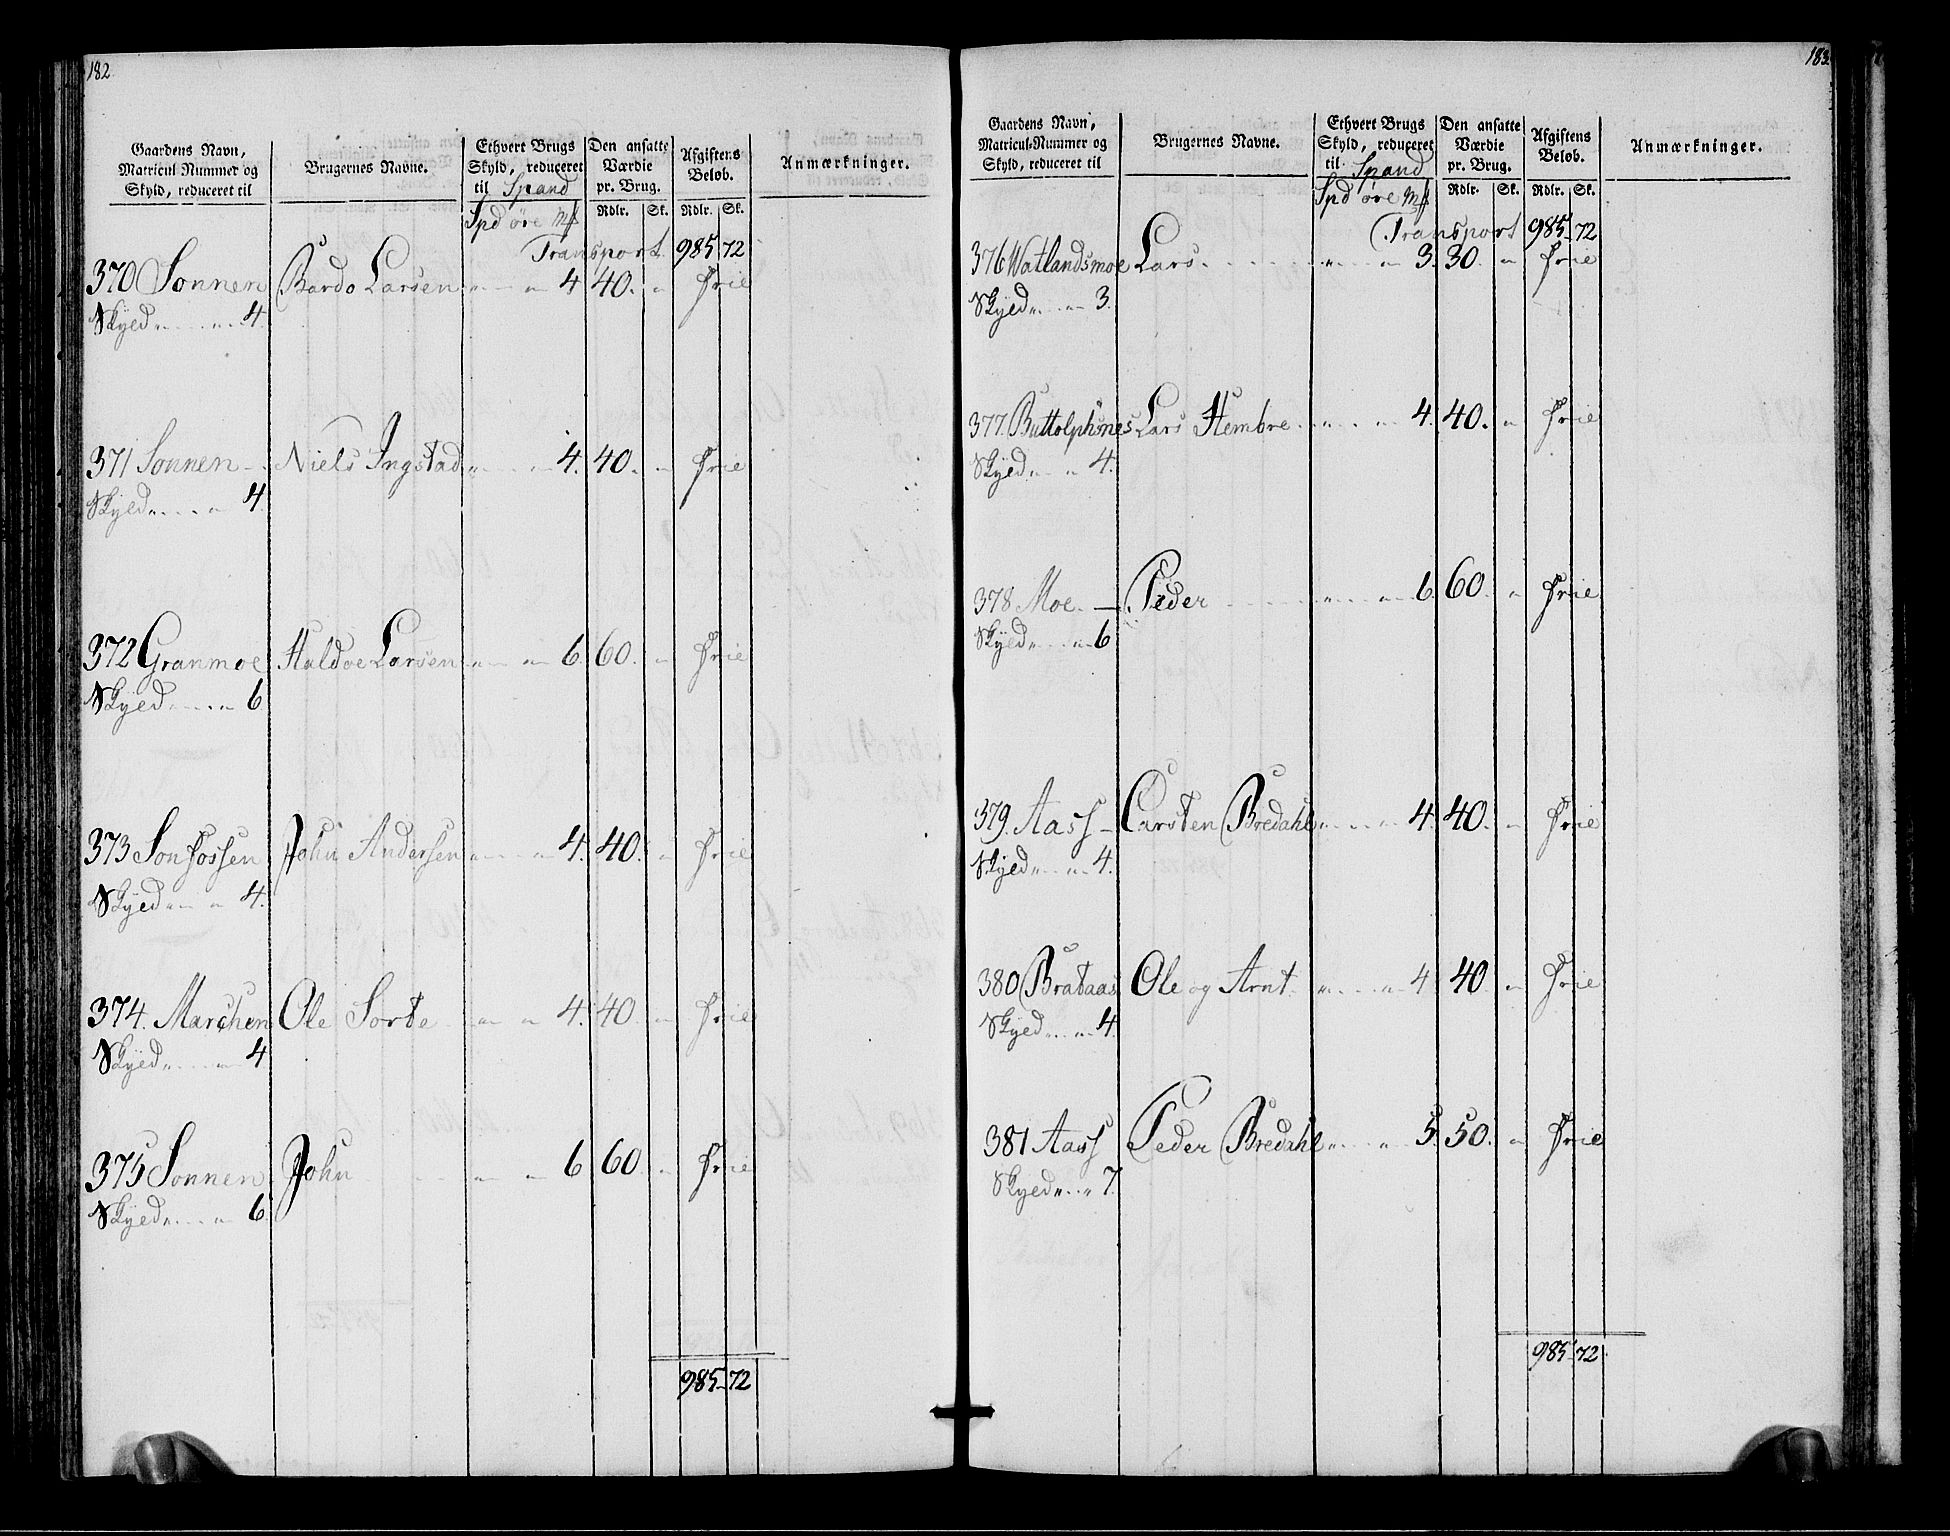 182
Gaardens Navn, Matricul Nummer og Skyld, reduceret til | Brugernes Navne. | Ethvert Brugs Skyld, reduceret til Spand | Den ansatte Værdie pr. Brug. | Afgiftens Beløb. | Anmærkninger.
Spd øre Mk | Rdlr. | Sk. | Rdlr. | Sk.
Transport 985 72
370 Sonnen Bardo Larsen 4 40. Frie
Skyld 4
371 Sonnen Niels Ingstad 4. 40. Frie
Skyld 4
372 Granmoe Haldoe Larsen 6. 60. Frie
Skyld 6
373 Sonfossen John Andersen 4. 40. Frie
Skyld 4.
374. Marchen Ole Sorte 4. 40. Frie
Skyld 4
375 Sonnen John 6 60. Frie
Skyld 6
985 72
183
Gaardens Navn, Matricul-Nummer og Skyld, reduceret til | Brugernes Navne. | Ethvert Brugs Skyld, reduceret til Spand | Den ansatte Værdie pr. Brug. | Afgiftens Beløb. | Anmærkninger.
Spd øre Mk | Rdlr. | Sk. | Rdlr. | Sk.
Transport 985 72
376 Watlandsmoe Lars 3. 30. Frie
Skyld 3.
377. Buttolphsnes Lars Hembre 4. 40. Frie
Skyld 4.
378 Moe Peder 6. 60. Frie
Skyld 6
379. Aass Carsten Bredahl 4. 40. Frie
Skyld 4.
380 Brataas Ole og Arnt 4 40. Frie
Skyld 4.
381 Aass Peder Bredahl 5. 50. Frie
Skyld 7.
985 72